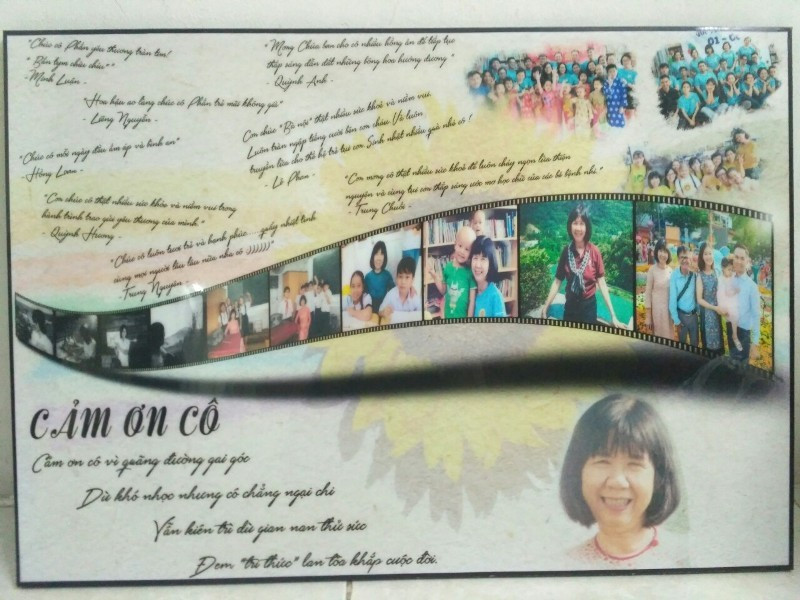 "Chúc cô Phấn yêu thương tràn tim!
"Bắn tym chíu chíu""
- Minh Luân -
"Mong Chúa ban cho cô nhiều hồng ân để tiếp tục
thắp sáng dẫn dắt những bông hoa hướng dương"
- Quỳnh Anh -
"Hoa hậu ao làng chúc cô Phấn trẻ mãi không già"
- Lăng Nguyễn -
Con chúc "Bà nội" thật nhiều sức khoẻ và niềm vui.
Luôn tràn ngập tiếng cười bên con cháu. Và luôn
truyền lửa cho thế hệ trẻ tụi con. Sinh nhật nhiều quà nhé cô!
- Lê Phan -
"Chúc cô mỗi ngày đều ấm áp và bình an"
- Hồng Loan -
"Con mong cô thật nhiều sức khoẻ để luôn cháy ngọn lửa thiện
nguyện và cùng tụi con thắp sáng ước mơ học chữ của các bé bệnh nhi."
- Trung Chuối -
"Con chúc cô thật nhiều sức khỏe và niềm vui trong
hành trình trao gửi yêu thương của mình"
- Quỳnh Hương -
"Chúc cô luôn tươi trẻ và hạnh phúc quẩy nhiệt tình
cùng mọi người lâu lâu nữa nha cô :))))))"
- Trung Nguyên -
CẢM ƠN CÔ
Cảm ơn cô vì quãng đường gai góc
Dù khó nhọc nhưng cô chẳng ngại chi
Vẫn kiên trì dù gian nan thử sức
Đem "tri thức" lan tỏa khắp cuộc đời.